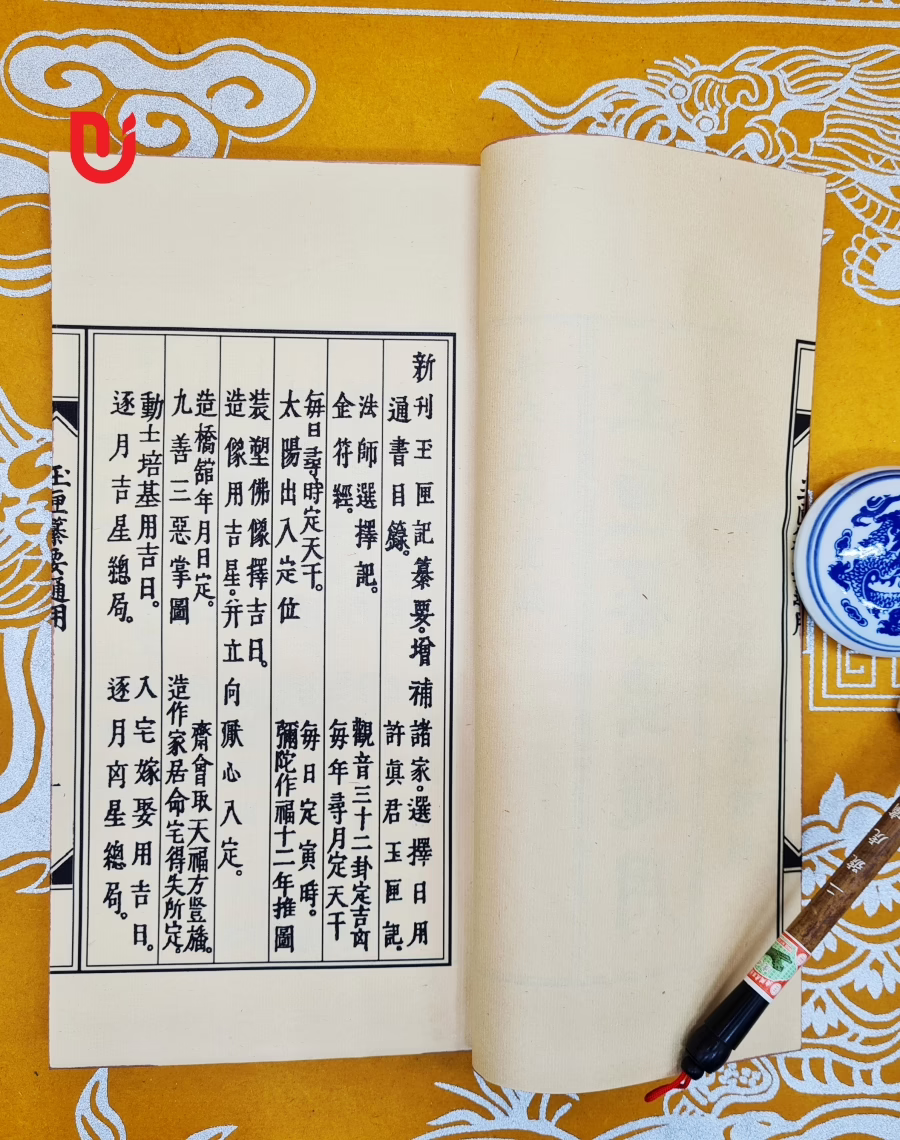 新刊玉匣記纂要。增補諸家。選擇日用
通書目錄。 許眞君玉匣記。
法師選擇記。 觀音三十二卦定吉㐫
企符經。 每年尋月定天干
每日尋時定天干。 每日定寅時。
太陽出入定位 彌陀作福十二年推圖
裝塑佛像擇吉日。
造像用吉星。并立向厭心入定。
造橋舘年月日定。 齋會取天福方豎旛。
九善三惡掌圖 造作家居命宅得失所定。
動土培基用吉日。 入宅嫁娶用吉日。
逐月吉星總局。 逐月㐫星總局。
玉匣纂要通用
二號虎